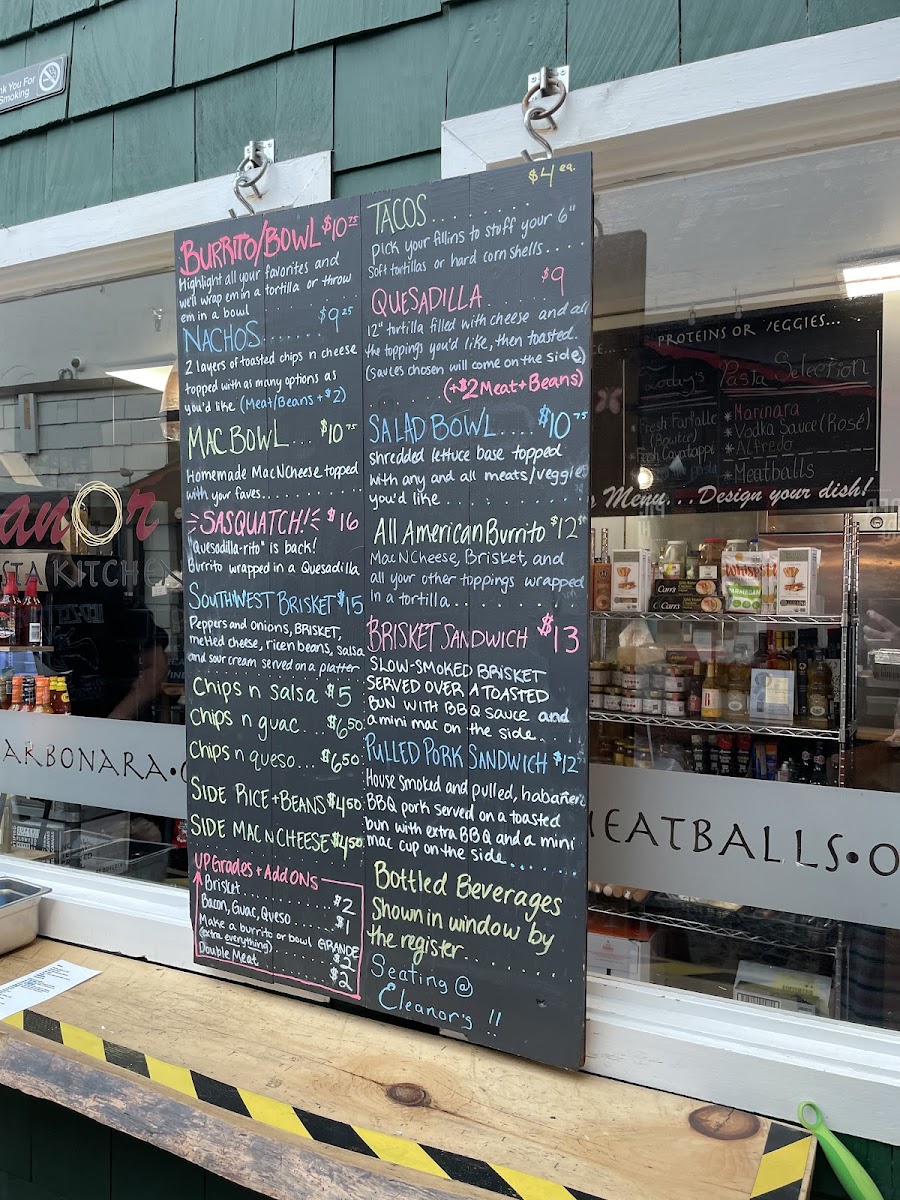 nk You For
Smoking
BURRITO/BOWL $10.75
Highlight all your favorites and
we'll wrap em in a tortilla or throw
em in a bowl
NACHOS....... $9.25
2 layers of toasted chips n cheese
topped with as many options as
you'd like (Meat/Beans +$2)
MAC BOWL... $10.75
Homemade Mac N Cheese topped
with your faves.............
SASQUATCH! $16
"Quesadilla-rito" is back!
Burrito wrapped in a Quesadilla
SOUTHWEST BRISKET $15
Peppers and onions, BRISKET,
melted cheese, rice n beans, salsa
and sour cream served on a platter
Chips n salsa $5
Chips n guac....$6.50
Chips n queso...$6.50
SIDE RICE + BEANS $4.50
SIDE MAC N CHEESE $4.50
UPGrades + Add ONs
Brisket............$2
Bacon, Guac, Queso......$1
Make a burrito or bowl GRANDE
(extra everything)......$2
Double Meat.......$2
$4 ea.
TACOS..........
pick your fillins to stuff your 6"
Soft tortillas or hard corn shells....
$9
QUESADILLA
12" tortilla filled with cheese and all
the toppings you'd like, then toasted.
(sauces chosen will come on the side)
(+$2 Meat + Beans)
SALAD BOWL....$10.75
shredded lettuce base topped
with any and all meats/veggies
you'd like
All American Burrito $12
Mac N Cheese, Brisket, and
all your other toppings wrapped
in a tortilla...
BRISKET SANDWICH $13
SLOW-SMOKED BRISKET
SERVED OVER A TOASTED
BUN WITH BBQ SAUCE and
a mini mac on the side..
PULLED PORK SANDWICH $12
House smoked and pulled, habañero
BBQ pork served on a toasted
bun with extra BBQ and a mini
mac cup on the side....
Bottled Beverages
Shown in window by
the register
Seating @
Eleanor's !!
PROTEINS OR VEGGIES...
Pasta Selection
Fresh Farfalle
*Marinara
*Vodka Sauce (Rosé)
*Alfredo
*Meatballs
Menu... Design your dish!
anor
STA KITCHEN
ARBONARA•
MEATBALLS•O
Carr's
Carr's
Whisps
PARMESAN